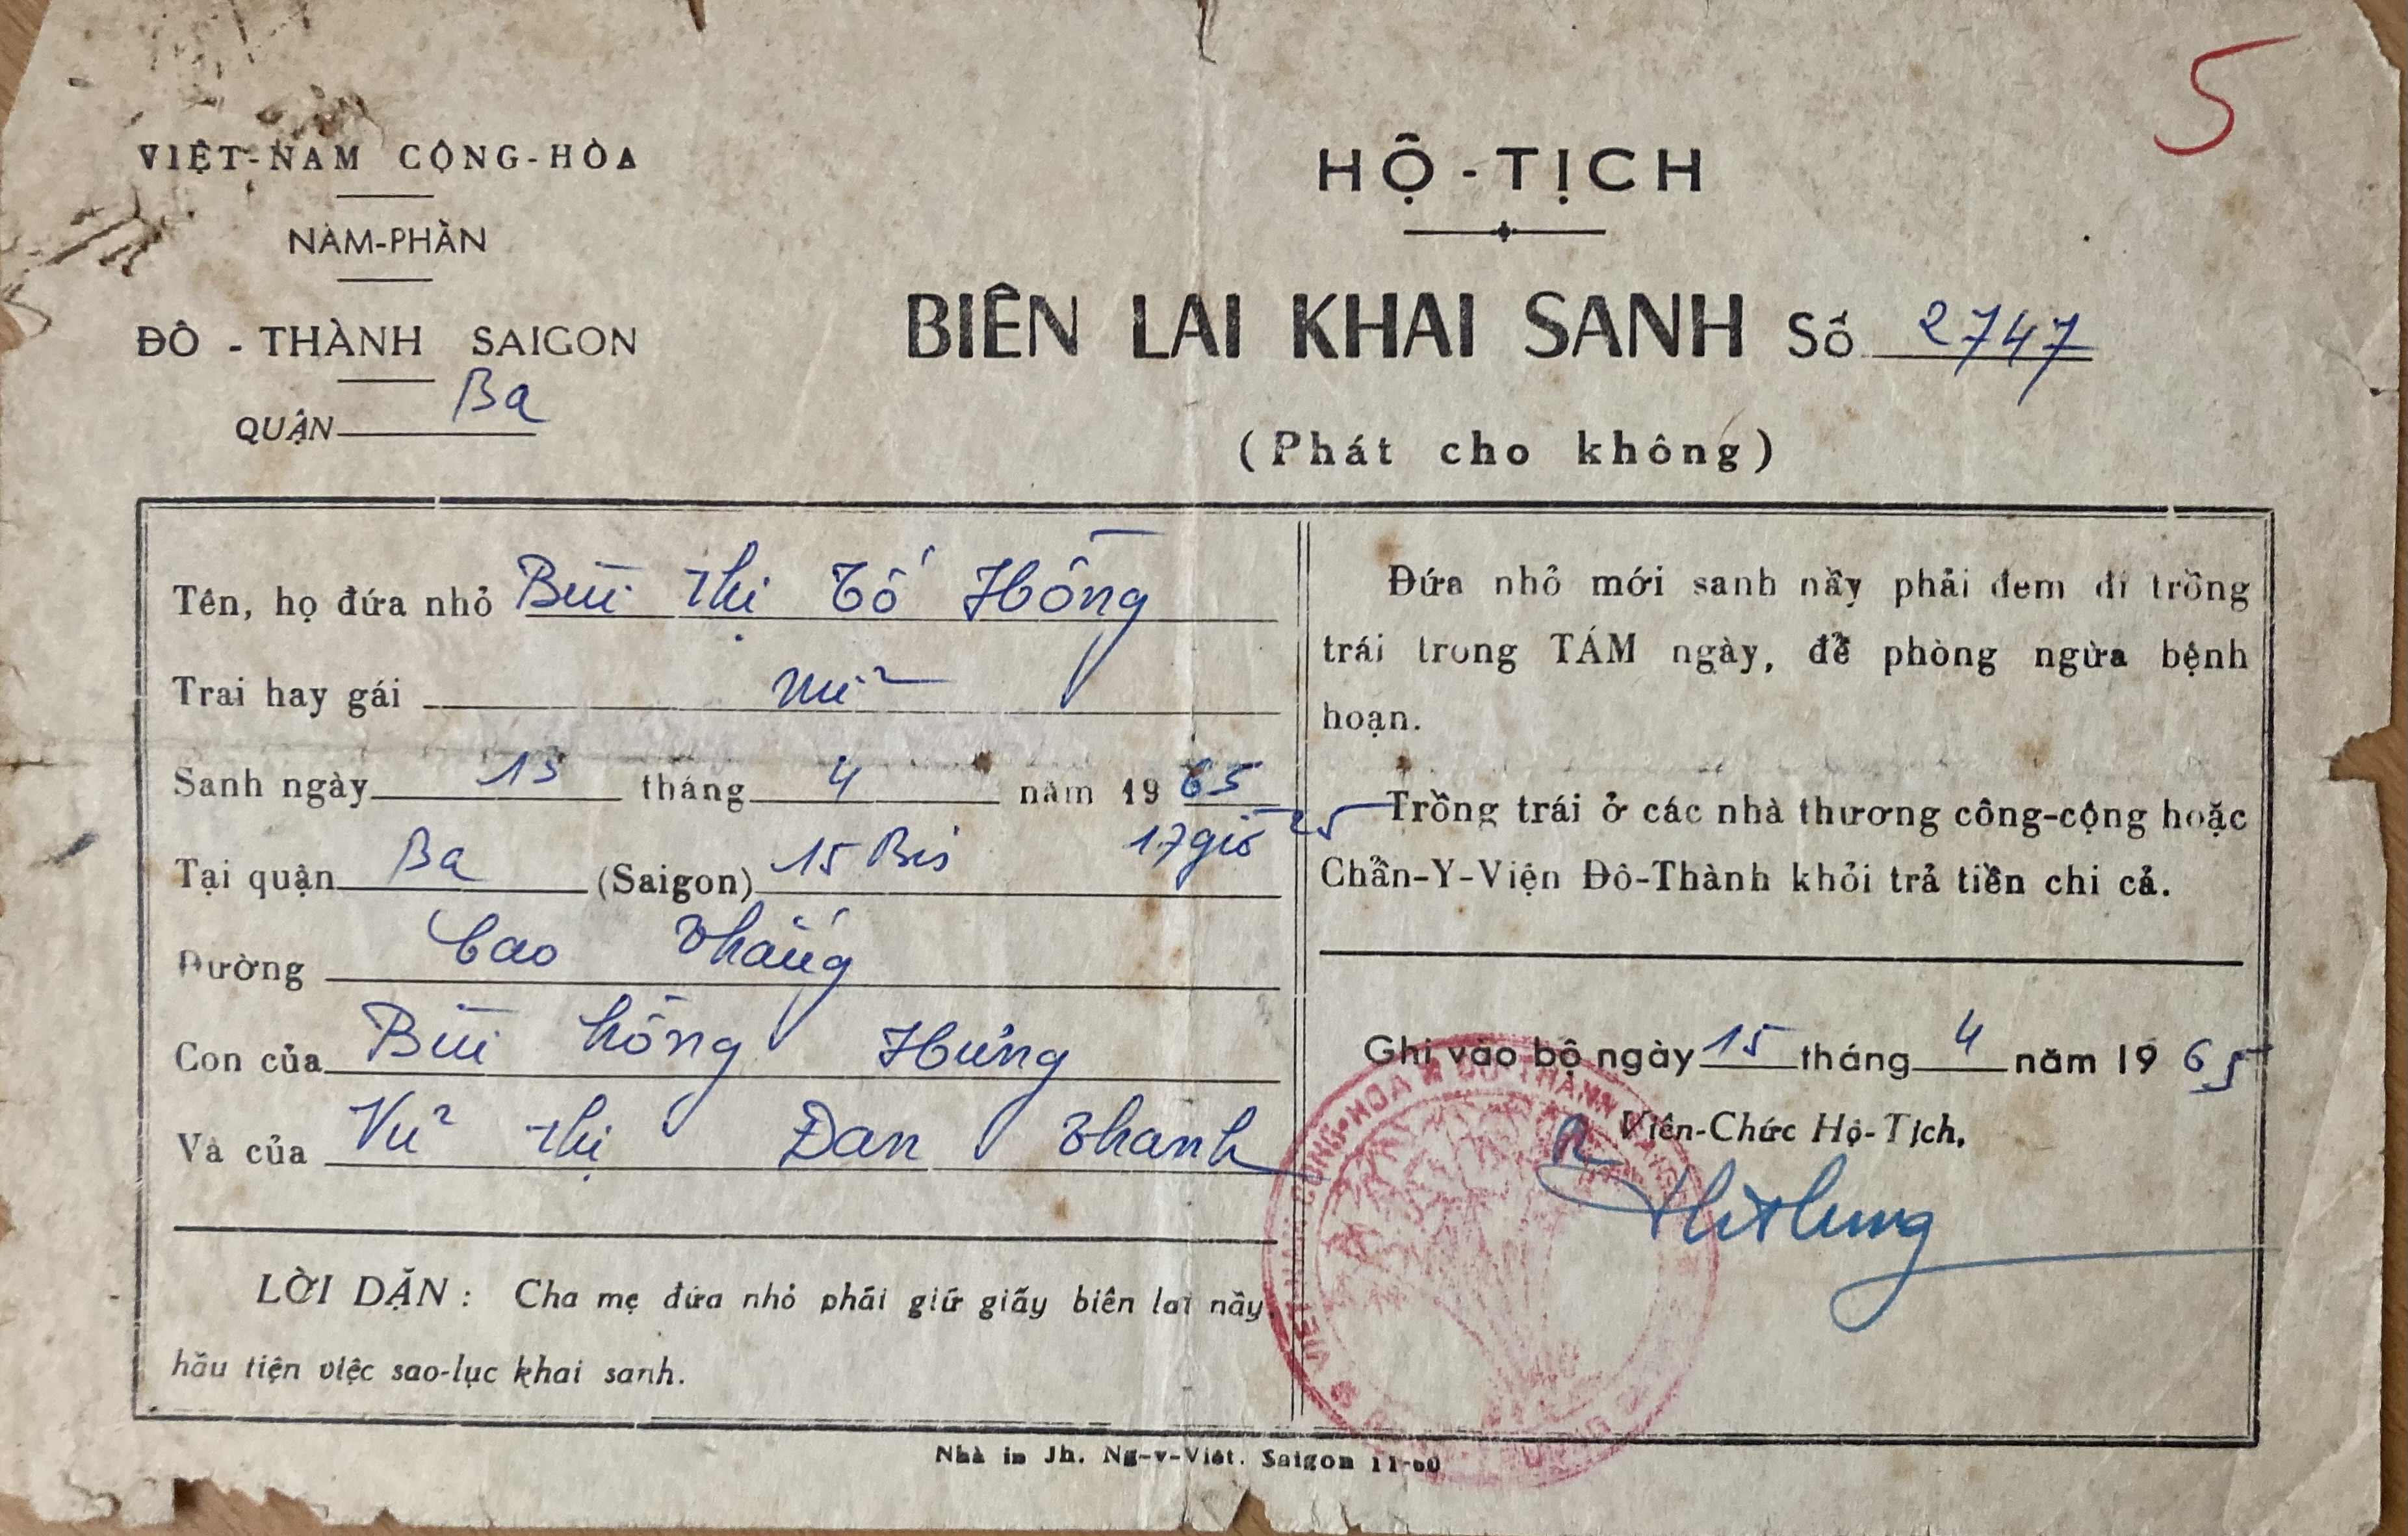 5
VIỆT-NAM CỘNG-HÒA
NAM-PHẦN
ĐÔ - THÀNH SAIGON
QUẬN Ba
HỘ-TỊCH
BIÊN LAI KHAI SANH Số 2747
(Phát cho không)
Tên, họ đứa nhỏ Bùi Thị Tố Hồng
Trai hay gái nữ
Sanh ngày 13 tháng 4 năm 1965
17 giờ 25
Tại quận Ba (Saigon) 15 Bis
Đường Cao Thắng
Con của Bùi Hồng Hưng
Và của Vũ Thị Đan Thanh
LỜI DẶN : Cha mẹ đứa nhỏ phải giữ giấy biên lai nầy
hầu tiện việc sao-lục khai sanh.
Đứa nhỏ mới sanh nầy phải đem đi trồng
trái trong TÁM ngày, để phòng ngừa bệnh
hoạn.
Trồng trái ở các nhà thương công-cộng hoặc
Chẩn-Y-Viện Đô-Thành khỏi trả tiền chi cả.
Ghi vào bộ ngày 15 tháng 4 năm 1965
Viên-Chức Hộ-Tịch,
Nhà in Jh. Ng-v-Viết. Saigon 11-60